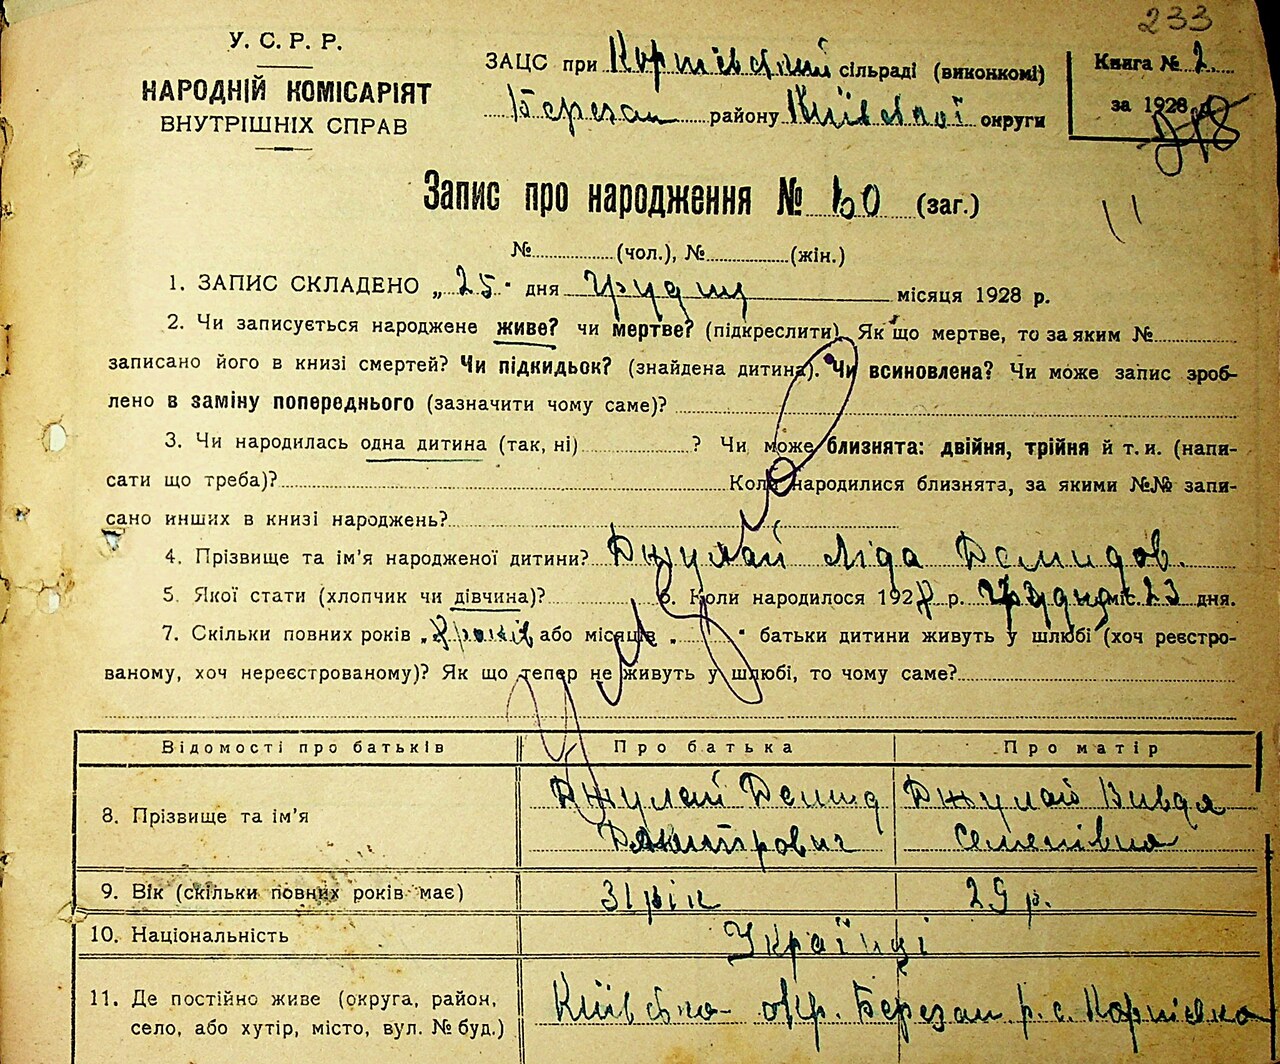 233
У. С. Р. Р.
НАРОДНІЙ КОМІСАРІЯТ
ВНУТРІШНІХ СПРАВ
ЗАЦС при Корніївській сільраді (виконкомі)
Березан району Київської округи
Книга № 2.
за 1928
Запис про народження № 60 (заг.)
№ (чол.), № (жін.)
1. ЗАПИС СКЛАДЕНО „25" дня грудня місяця 1928 р.
2. Чи записується народжене живе? чи мертве? (підкреслити). Як що мертве, то за яким №
записано його в книзі смертей? Чи підкидьок? (знайдена дитина). Чи всиновлена? Чи може запис зроб-
лено в заміну попереднього (зазначити чому саме)?
3. Чи народилась одна дитина (так, ні) ? Чи може близнята: двійня, трійня й т. и. (напи-
сати що треба)? Коли народилися близнята, за якими №№ запи-
сано инших в книзі народжень?
4. Прізвище та ім'я народженої дитини? Джулай Ліда Демидов.
5. Якої стати (хлопчик чи дівчина)? 6. Коли народилося 1928 р. грудня міс. 23 дня.
7. Скільки повних років „8 років або місяців „ " батьки дитини живуть у шлюбі (хоч реєстро-
ваному, хоч нереєстрованому)? Як що тепер не живуть у шлюбі, то чому саме?
Відомості про батьків Про батька Про матір
8. Прізвище та ім'я Джулай Демид Джулай Вивдя
Дмитрович Семенівна
9. Вік (скільки повних років має) 31 рік 29 р.
10. Національність Українці
11. Де постійно живе (округа, район, Київська окр. Березан р. с. Корніївка
село, або хутір, місто, вул. № буд.)